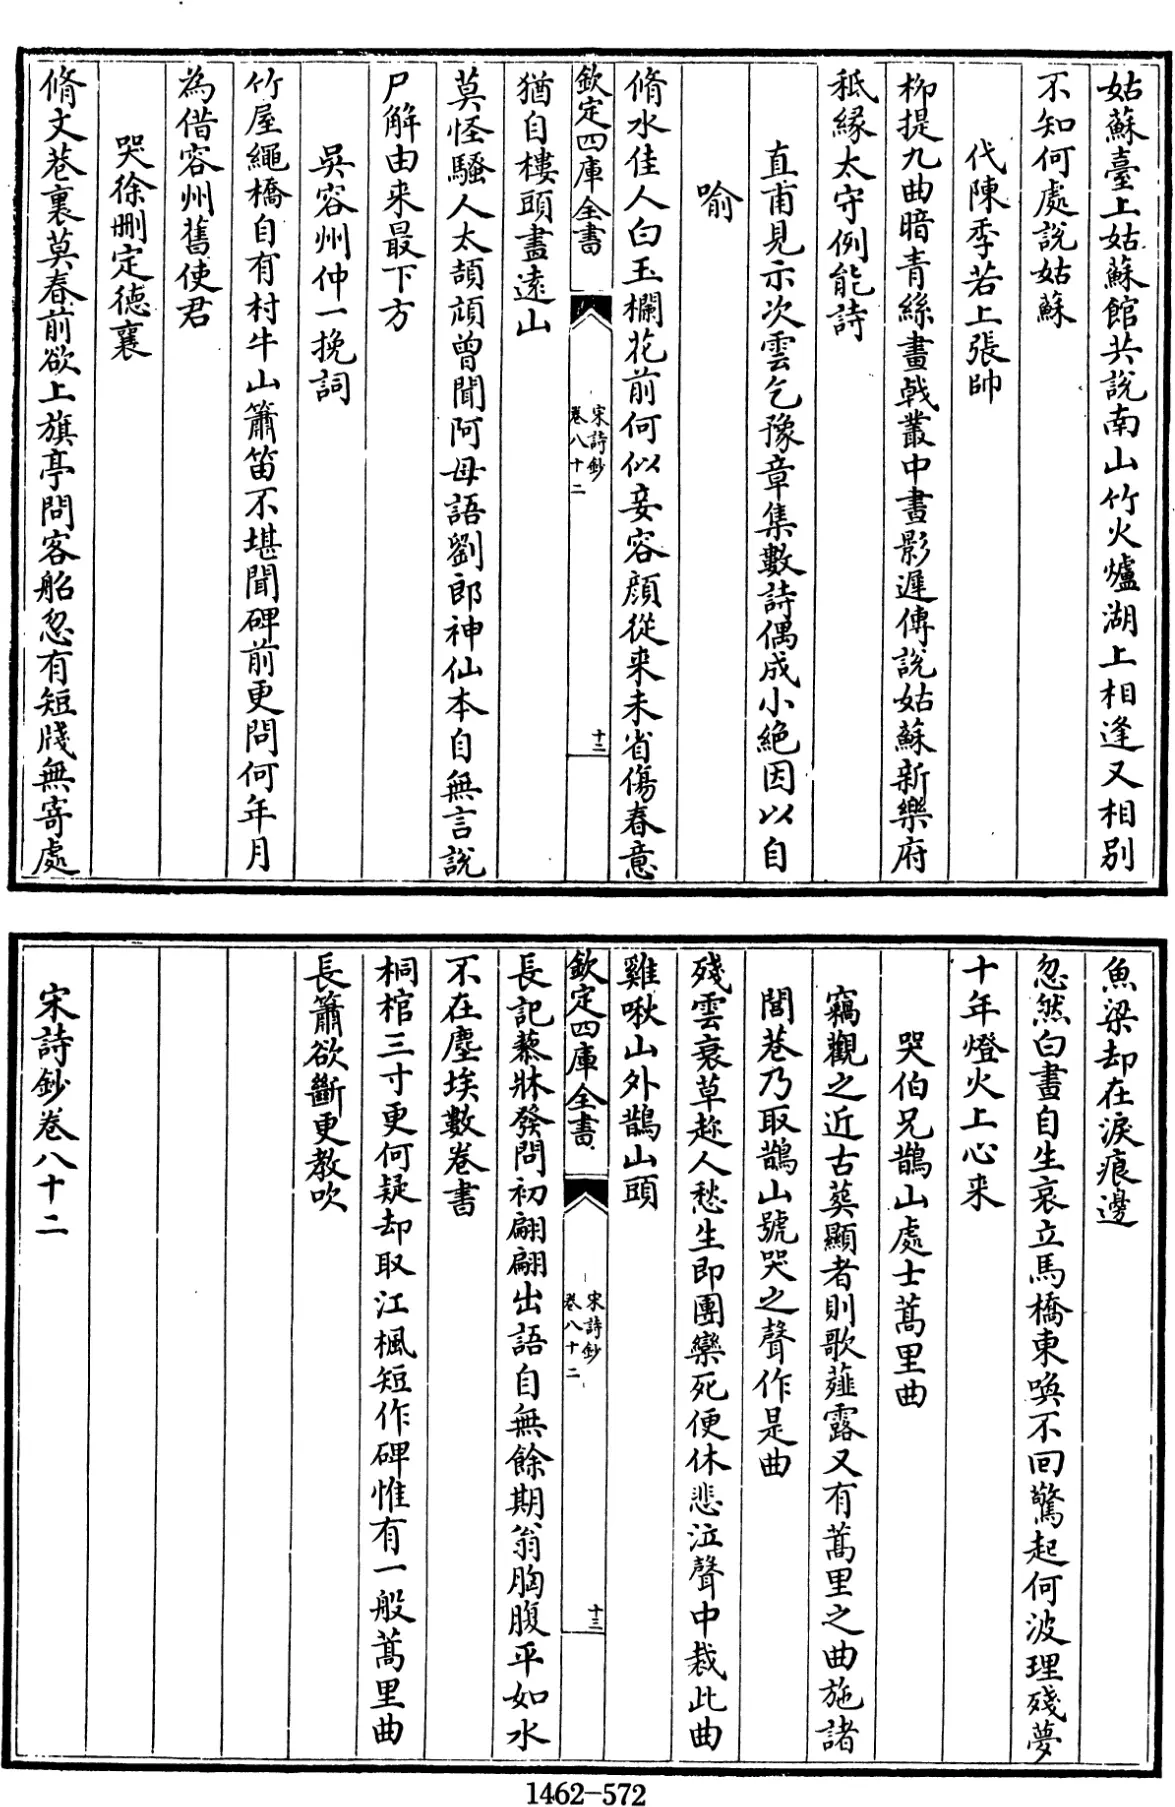 姑蘇臺上姑蘇館共說南山竹火爐湖上相逢又相別
不知何處說姑蘇
代陳季若上張帥
柳提九曲暗青絲畫戟叢中晝影遲傳說姑蘇新樂府
秪緣太守例能詩
直甫見示次雲乞豫章集數詩偶成小絶因以自
喻
脩水佳人白玉欄花前何似妾容顔從来未省傷春意
欽定四庫全書
宋詩鈔
卷八十二
十二
猶自樓頭畫遠山
莫怪騷人太頡頏曾聞阿母語劉郎神仙本自無言說
尸解由来最下方
吳容州仲一挽詞
竹屋繩橋自有村牛山簫笛不堪聞碑前更問何年月
為借容州舊使君
哭徐刪定德襄
脩文巷裏莫春前欲上旗亭問客船忽有短牋無寄處
魚梁却在淚痕邊
忽然白晝自生哀立馬橋東喚不回驚起何波理殘夢
十年燈火上心来
哭伯兄鵲山處士蒿里曲
竊觀之近古葬顯者則歌薤露又有蒿里之曲施諸
閭巷乃取鵲山號哭之聲作是曲
殘雲衰草趂人愁生即團欒死便休悲泣聲中裁此曲
雞啾山外鵲山頭
欽定四庫全書
宋詩鈔
卷八十二
十三
長記藜牀發問初翩翩出語自無餘期翁胸腹平如水
不在塵埃數卷書
桐棺三寸更何疑却取江楓短作碑惟有一般蒿里曲
長簫欲斷更教吹
宋詩鈔卷八十二
1462-572